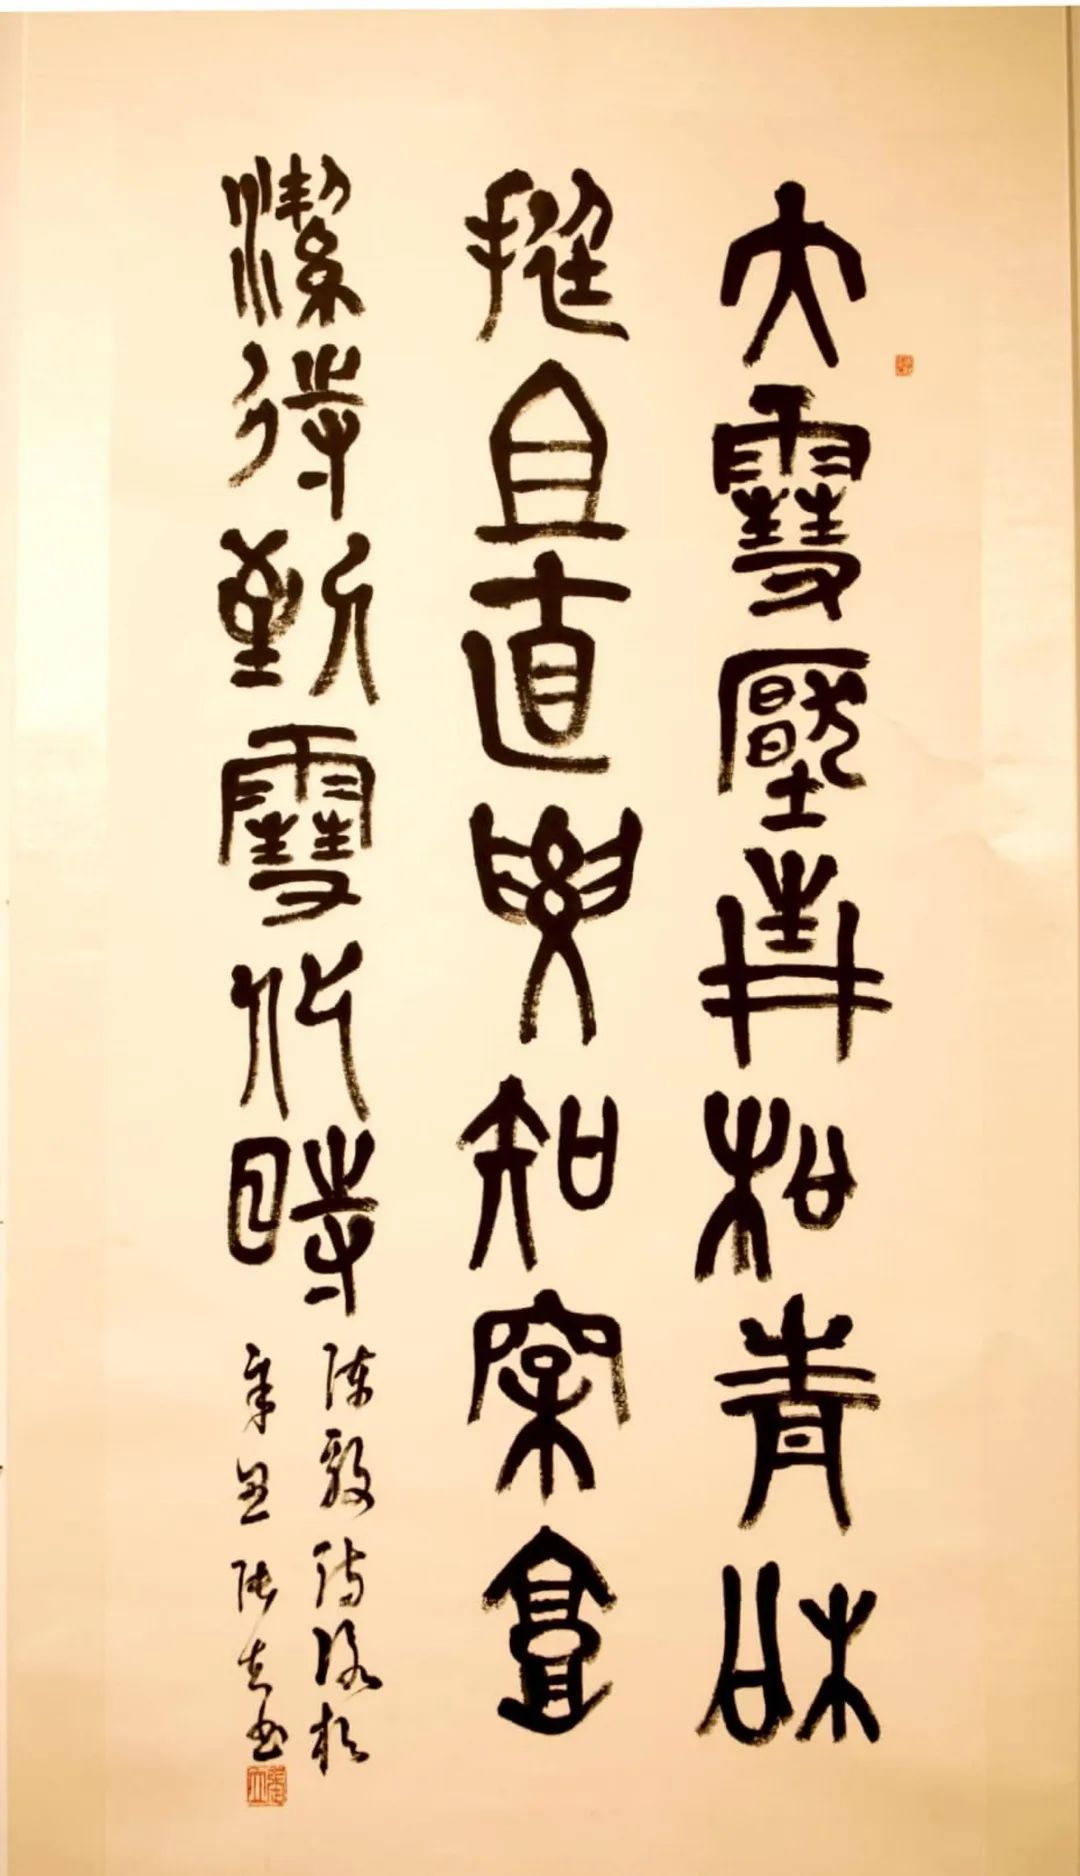 大雪壓青松青松
挺且直要知松高
潔待到雪化時
陳毅詩詠松
辛丑張立書